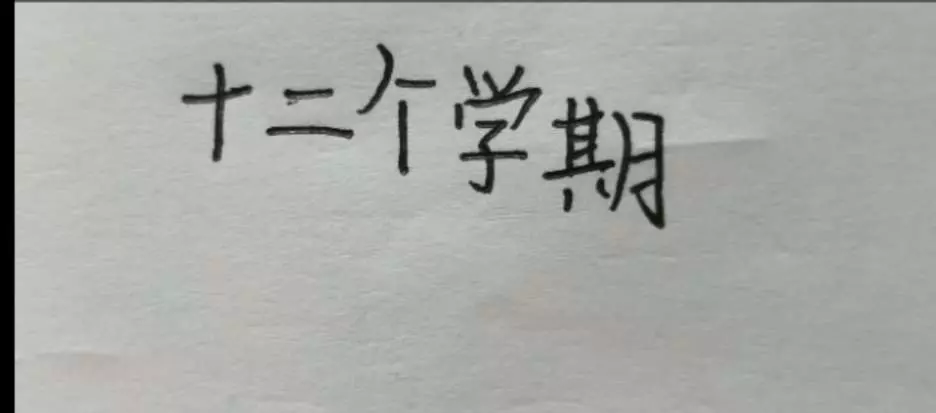 十二个学期